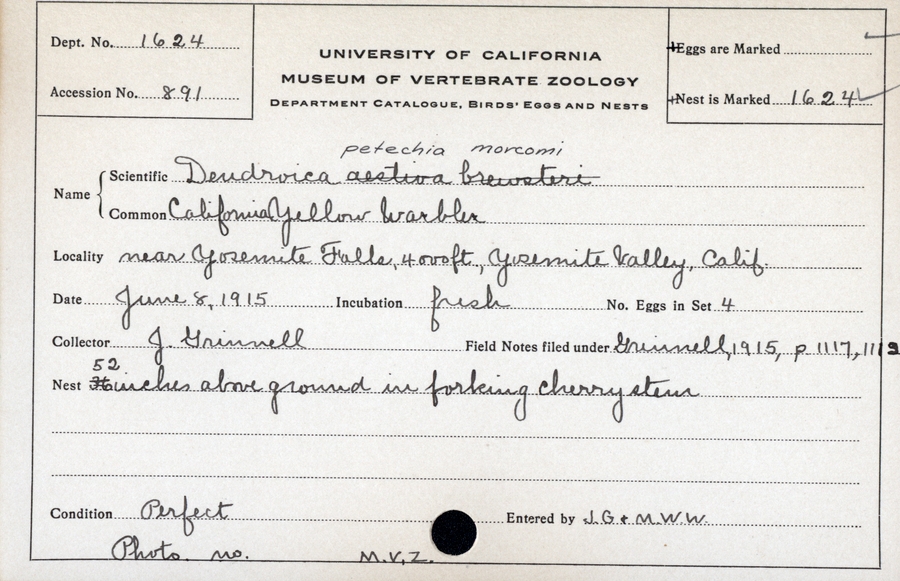 Dept. No. 1624
Accession No. 891
UNIVERSITY OF CALIFORNIA
MUSEUM OF VERTEBRATE ZOOLOGY
DEPARTMENT CATALOGUE, BIRDS' EGGS AND NESTS
Eggs are Marked
Nest is Marked 1624
petechia morcomi
Name
Scientific Dendroica aestiva brewsteri
Common California Yellow Warbler
Locality near Yosemite Falls, 4000ft., Yosemite Valley, Calif.
Date June 8, 1915 Incubation fresh No. Eggs in Set 4
Collector J. Grinnell Field Notes filed under Grinnell, 1915, p 1117, 1119
52
Nest 36 inches above ground in forking cherry stem
Condition Perfect Entered by J.G. & M.W.W.
Photo. no. M.V.Z.